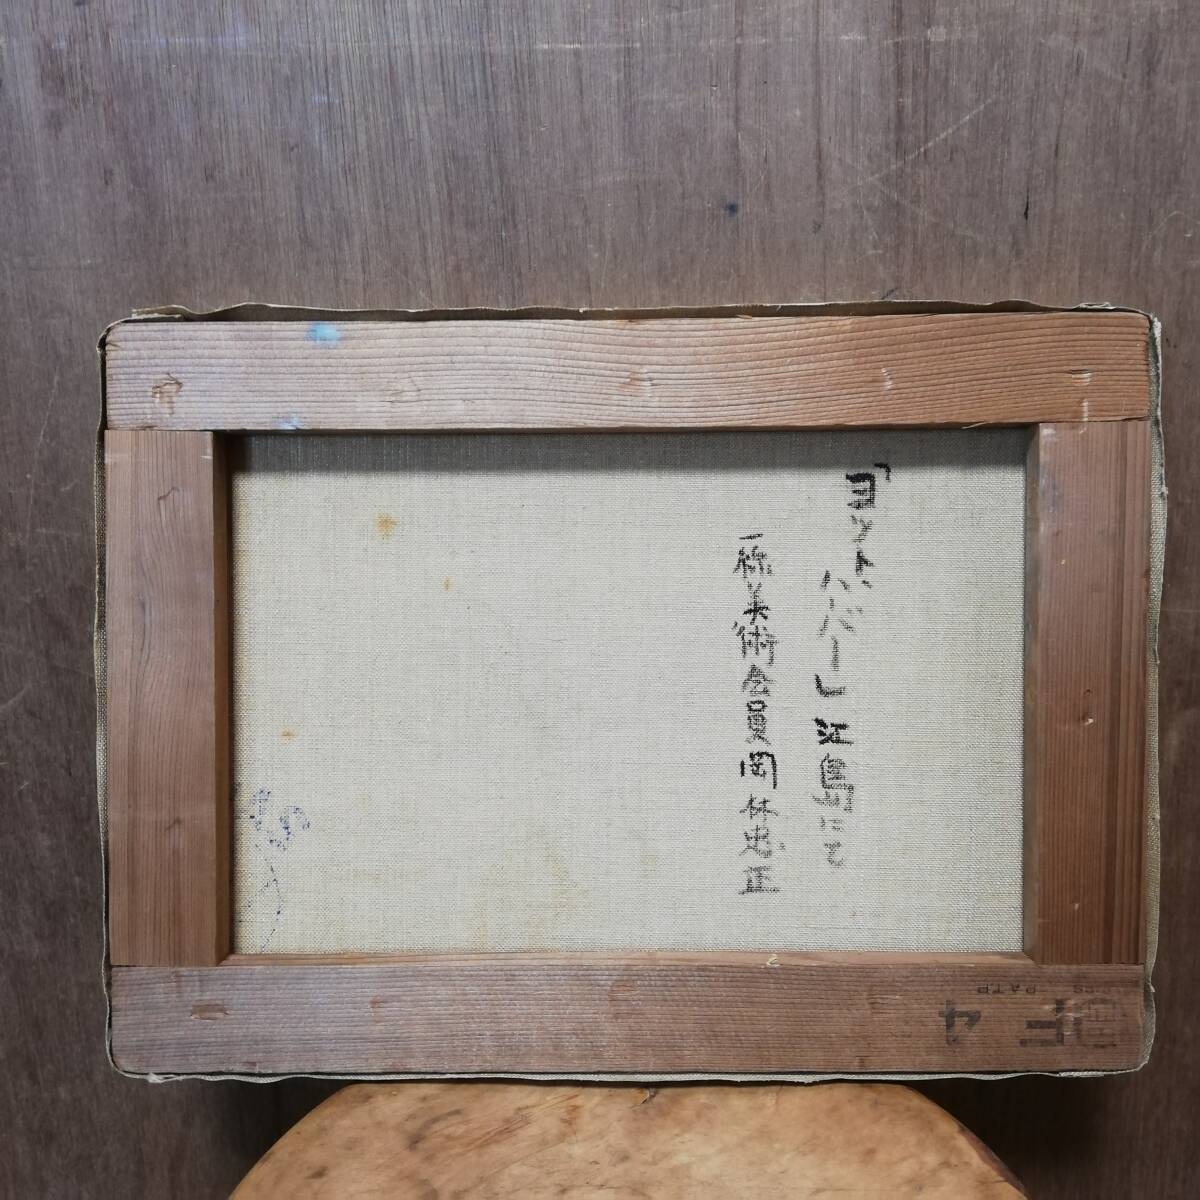 「ヨットハーバー」江島にて
一線美術会員岡林忠正
F4